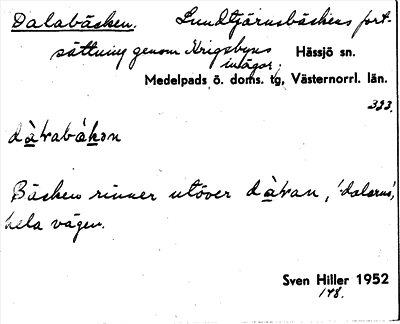 Dalabäcken. Lundtjärnsbäckens fort-
sättning genom Krigsbyns Hässjö sn.
inägor;
Medelpads ö. doms. tg, Västernorrl. län.
323.
dàrabákən
Bäcken rinner utöver dàran, 'dalarna',
hela vägen.
Sven Hiller 1952
148.